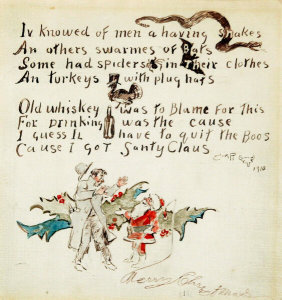 Iv knowed of men a having snakes
An others swarmes of Bats
Some had spiders in their clothes
An turkeys with plug hats
Old whiskey was to Blame for this
For drinking was the cause
I guess Il have to quit the Boos
Cause I got Santy Claus
1910
Merry Christmas